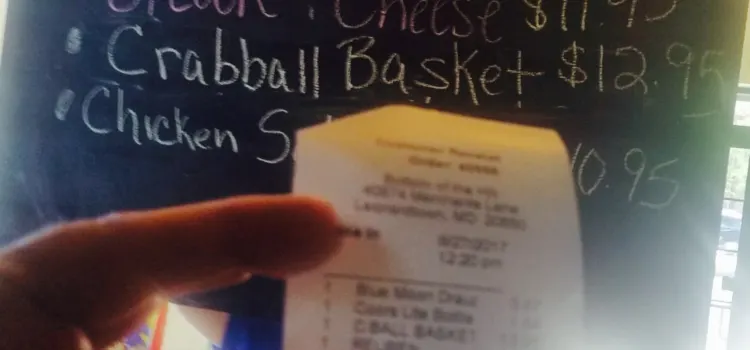 Steak & Cheese $11.95
• Crabball Basket $12.95
• Chicken
0.95
Customer Receipt
Bottom of the
Merchants Lane
Leonardtown, MD 20650
8/27/2017
12:20 pm
1 Blue Moon Draft
1 Coors Lite Bottle
1 C.BALL BASKET
1 REUBEN